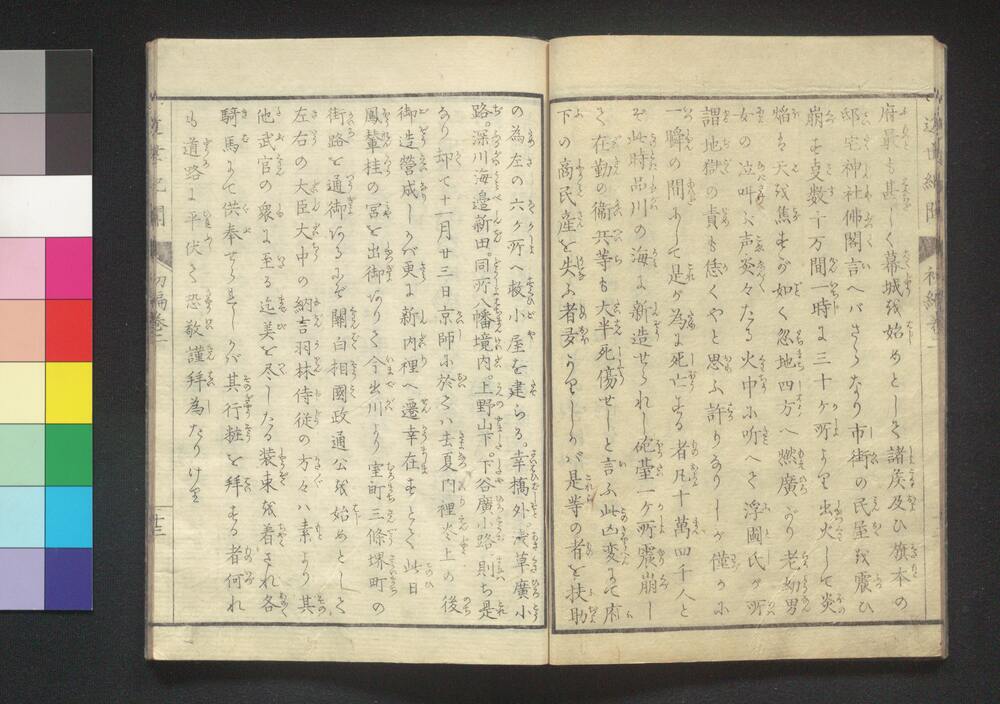 府最も甚しく幕城を始めとして諸侯及ひ旗本の
邸宅神社佛閣言へバさらなり市街の民屋を震ひ
崩す支数千万間一時に三十ケ所より出火して炎
焔は天を焦すが如く忽地四方へ燃廣がり老幼男
女の泣叫ぶ声炎々たる火中に听へて浮圖氏が所
謂地獄の責も恁くやと思ふ許りなりしが僅かに
一瞬の間にして是が為に死亡する者凡十萬四千人と
ぞ此時品川の海に新造せられし砲䑓一ケ所震崩し
て在勤の衞兵等も大半死傷せしと言ふ此凶変にて府
下の商民産を失ふ者多かりしかバ是等の者を扶助
の為左の六ケ所へ救小屋を建らる。幸橋外。浅草廣小
路。深川海邉新田。同所八幡境内。上野山下。下谷廣小路則ち是
なり却て十一月廿三日京師に於てハ去夏内裡炎上の後
御造營成しかバ更に新内裡へ遷幸在すとて此日
鳳輦桂の宮を出御ありて今出川より室町三條堺町の
街路を通御あるにぞ關白相國政通公を始めとして
左右の大臣大中の納言羽林侍従の方々ハ素より其
他武官の衆に至る迄美を尽したる装束を着され各
騎馬にて供奉せられしかバ其行粧を拝する者何れ
も道路に平伏て恐敬謹拝為たりけり
初編巻二
十三